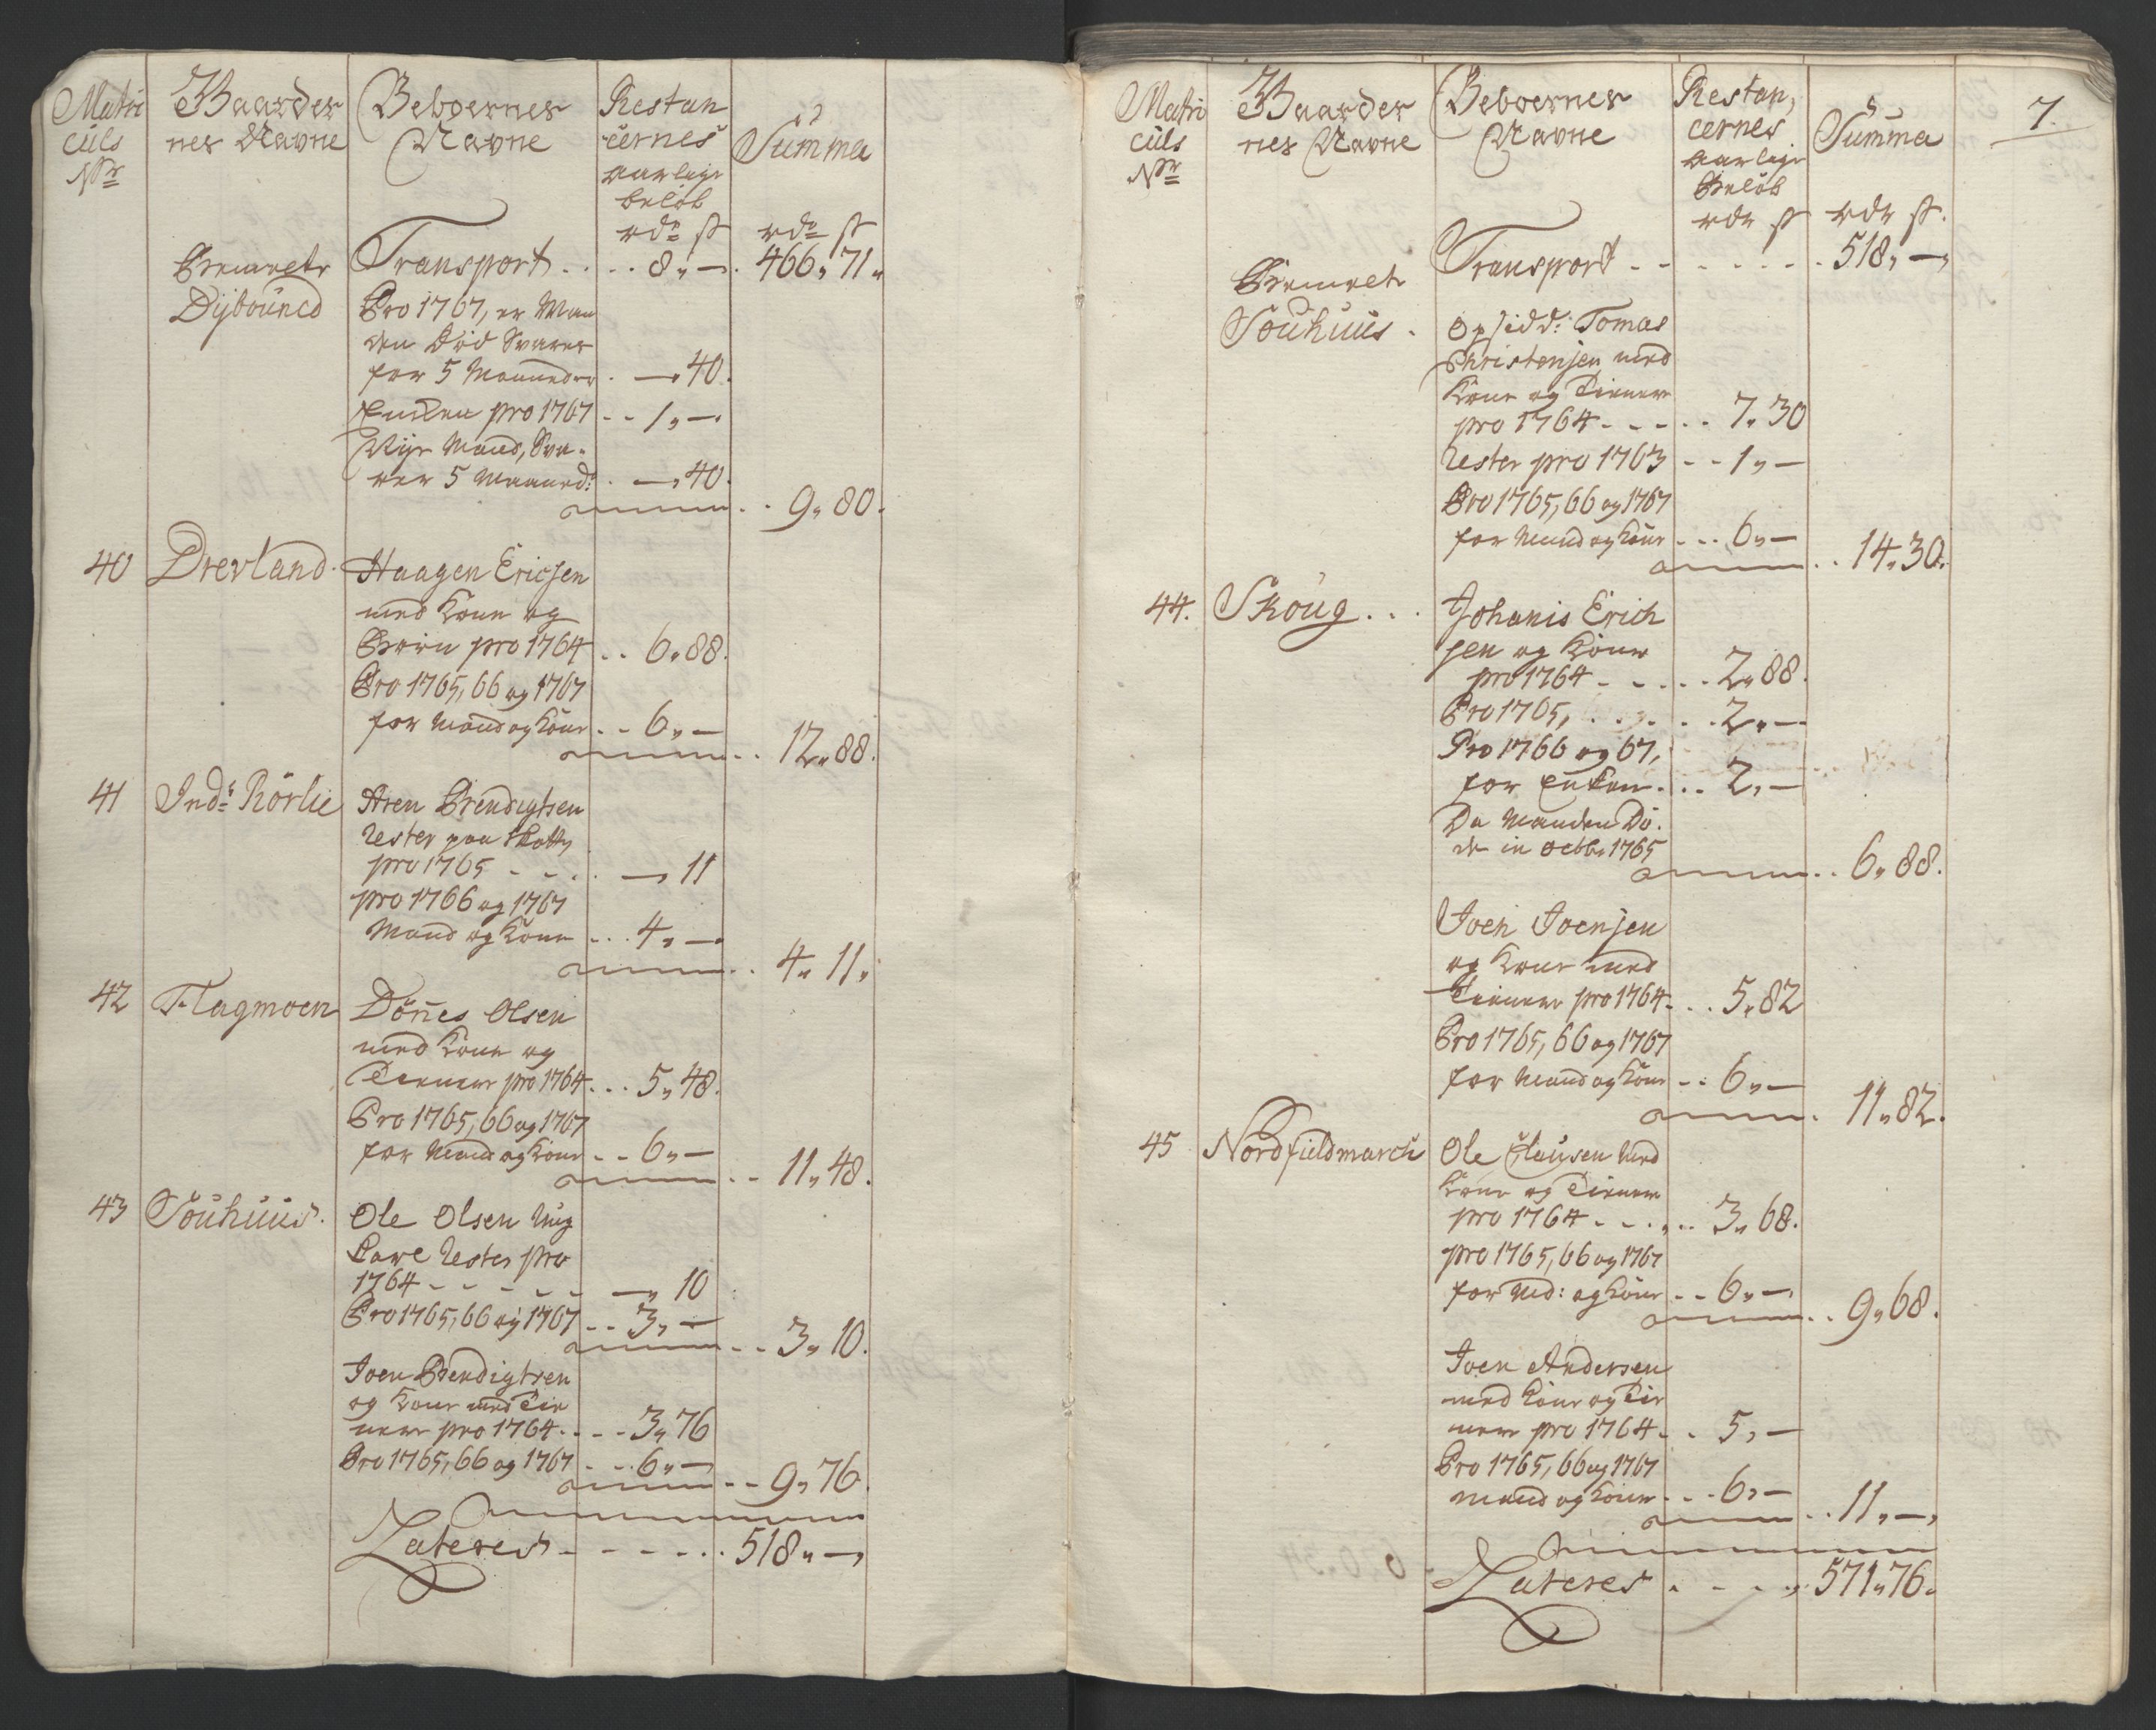 Matri
culs
Nr
Gaarder
nes Navne
Beboernes
Navne
Restan
cernes
aarlige
beløb
Summa
rdr ß rdr ß
Transport . . . . 8 „ — . 466 „ 71 „
Dÿbouned
Pro 1767, er Man
den Død Svarer
for 5 Maaneder . — „ 40 .
Enken pro 1767 - - 1 „ — .
Nÿe Mand, Sva-
rer 5 Maaned: . — „ 40 .
- - 9 „ 80 .
40 Drevland . Haagen Ericsen
med Kone og
Børn pro 1764 . . 6 „ 88 .
Pro 1765, 66 og 1767
for Mand og Kone . - 6 „ —
. . 12 „ 88 .
41 Ind: Rørlie Aren Bendigtsen
Rester paa Skatt
pro 1765 - - . . — „ 11
pro 1766 og 1767
Mand og Kone - . . 4 „ —
. . 4 „ 11 „
42 Flagmoen Dønes Olsen
med Kone og
Tienere pro 1764 . . . 5 „ 48 .
Pro 1765, 66 og 1767
for Mand og Kone - - 6 „ —
- - 11 „ 48 .
43 Souhuus . Ole Olsen Ung
Karl Rester pro
1764 - - - - - — „ 10
Pro 1765, 66 og 1767 . . 3 „ —
- - 3 „ 10 .
Joen Bendigtsen
og Kone med Tie
nere pro 1764 . . - - 3 „ 76
Pro 1765, 66 og 1767 - - . 6 „ —
- - 9 „ 76 .
Lateres - - - - - . . 518 „ —
7.
Matri
culs
Nr
Gaarder
nes Navne
Beboernes
Navne
Restan,
cernes
aarlige
Beløb
Summa
rdr ß rdr ß.
Transport - - - - - - - 518 „ —
Souhuus . Opsidd: Tomas
Christensen med
Kone og Tienere
pro 1764 - - - . . 7 „ 30
Rester pro 1763 - - 1 „ —
Pro 1765, 66 og 1767
for Mand og Kone - . . 6 „ —
. . 14 „ 30 .
44. Skoug . . . Johanis Erich
sen og Kone
pro 1764 - - - . . 2 „ 88 .
Pro 1765, . . . . . . 2 „ —
Pro 1766 og 67,
for Enken . . . 2 „ —
Da Manden Dø-
de in Octbr 1765
. . 6 „ 88 .
Joen Joensen
og Kone med
Tienere pro 1764 . . . 5 „ 82
Pro 1765, 66 og 1767
for Mand og Kone - - 6 „ —
. 11 „ 82 .
45 Nordfieldmarch Ole Clausen Med
Kone og Tienere
pro 1764 - - . . . 3 „ 68 .
pro 1765, 66 og 1767
for Md: og Kone - - 6 „ —
. . 9 „ 68 .
Joen Andersen
med Kone og Tie
nere pro 1764 - . 5 „ —
Pro 1765, 66 og 1767
mand og Kone - . - 6 „ —
. . 11 „ —
Lateres . - - - „ 571 „ 76 .